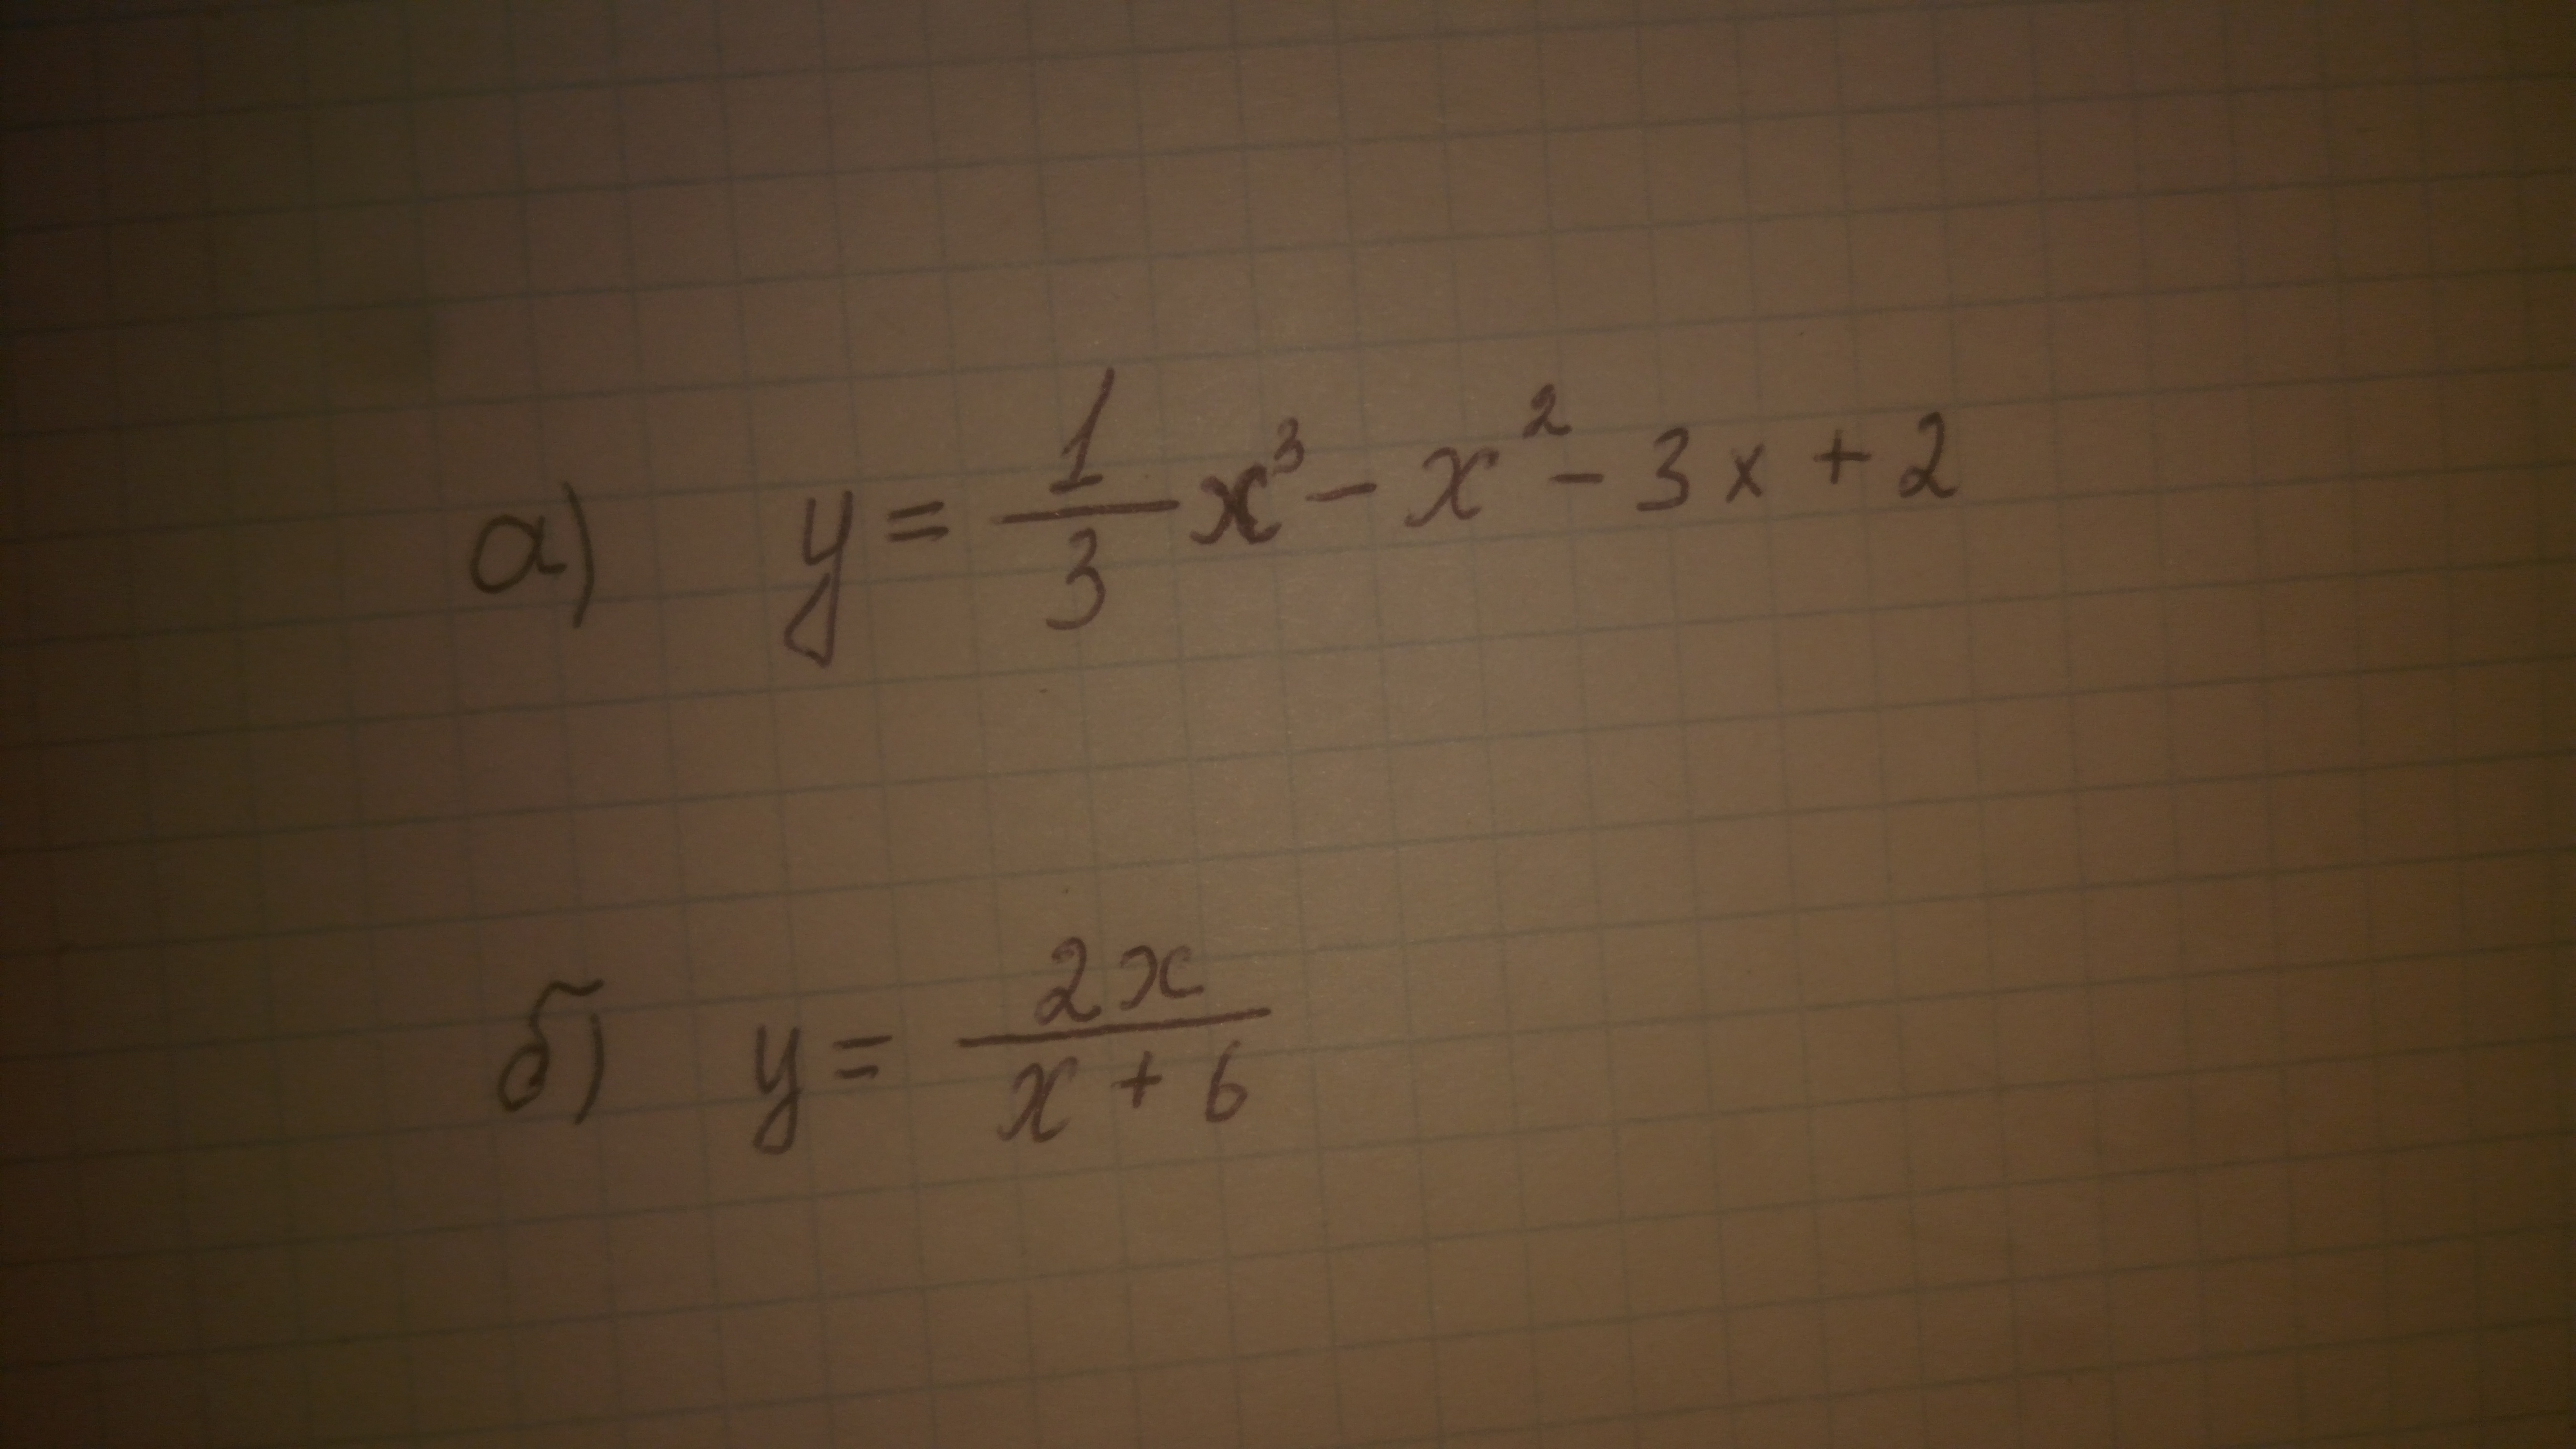 а) y = 1/3 x³ - x² - 3x + 2
б) y = 2x / x + 6